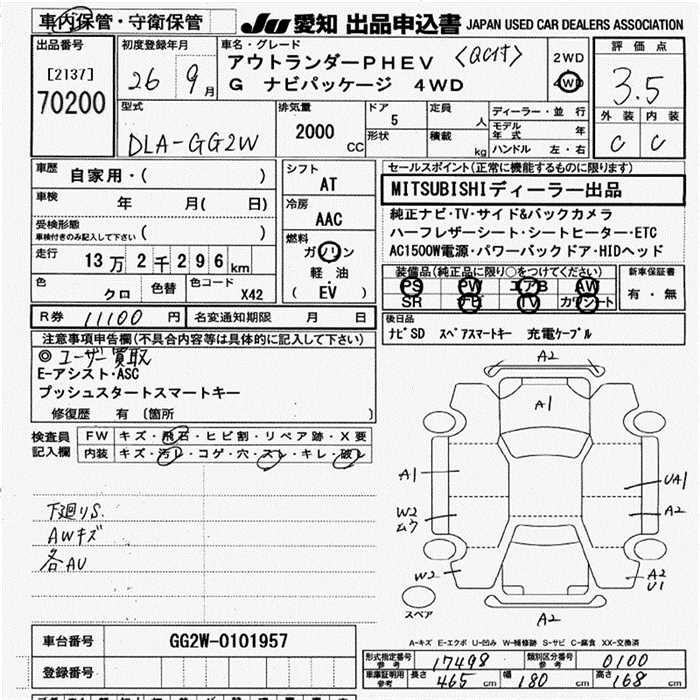 車内保管・守衛保管
JU 愛知 出品申込書 JAPAN USED CAR DEALERS ASSOCIATION
出品番号
[2137]
70200
初度登録年月
26 9月
車名・グレード
アウトランダーPHEV 〈QC付〉
G ナビパッケージ 4WD
2WD
4WD
評価点
3.5
外装 内装
C C
型式
DLA-GG2W
排気量
2000 CC
ドア
5
形状
定員
人
積載
kg
ディーラー・並行
モデル年式 年
ハンドル 左・右
車歴
自家用・( )
車検 年 月( 日)
受検形態
車検付きのみ記入して下さい ( )
走行 13万2千296km
色 クロ 色替 色コード X42
シフト
AT
冷房
AAC
燃料
ガソリン
軽油
( EV )
セールスポイント(正常に機能するものに限ります)
MITSUBISHIディーラー出品
純正ナビ・TV・サイド&バックカメラ
ハーフレザーシート・シートヒーター・ETC
AC1500W電源・パワーバックドア・HIDヘッド
装備品(純正品に限り○をつけてください)
PS PW エアB AW
SR ナビ TV カワシート
新車保証書
有・無
R券 11100 円 名変通知期限 月 日
後日品
ナビSD スペアスマートキー 充電ケーブル
注意事項申告欄(不具合内容等は具体的に記入して下さい)
◎ユーザー買取
E-アシスト・ASC
プッシュスタートスマートキー
修復歴 有 〔箇所 〕
検査員記入欄
FW キズ・飛石・ヒビ割・リペア跡・X要
内装 キズ・汚レ・コゲ・穴・スレ・キレ・破レ
下廻りS.
AWキズ
各AU
A2
A1
A1
UA1
W2
ムウ
A2
W2
A2
U1
スペア
A2
A-キズ E-エクボ U-凹み W-補修跡 S-サビ C-腐食 XX-交換済
車台番号 GG2W-0101957
登録番号
形式指定番号 参考 17498 類別区分番号 参考 0100
車庫証明用 参考 長さ 465cm 幅 180cm 高さ 168cm